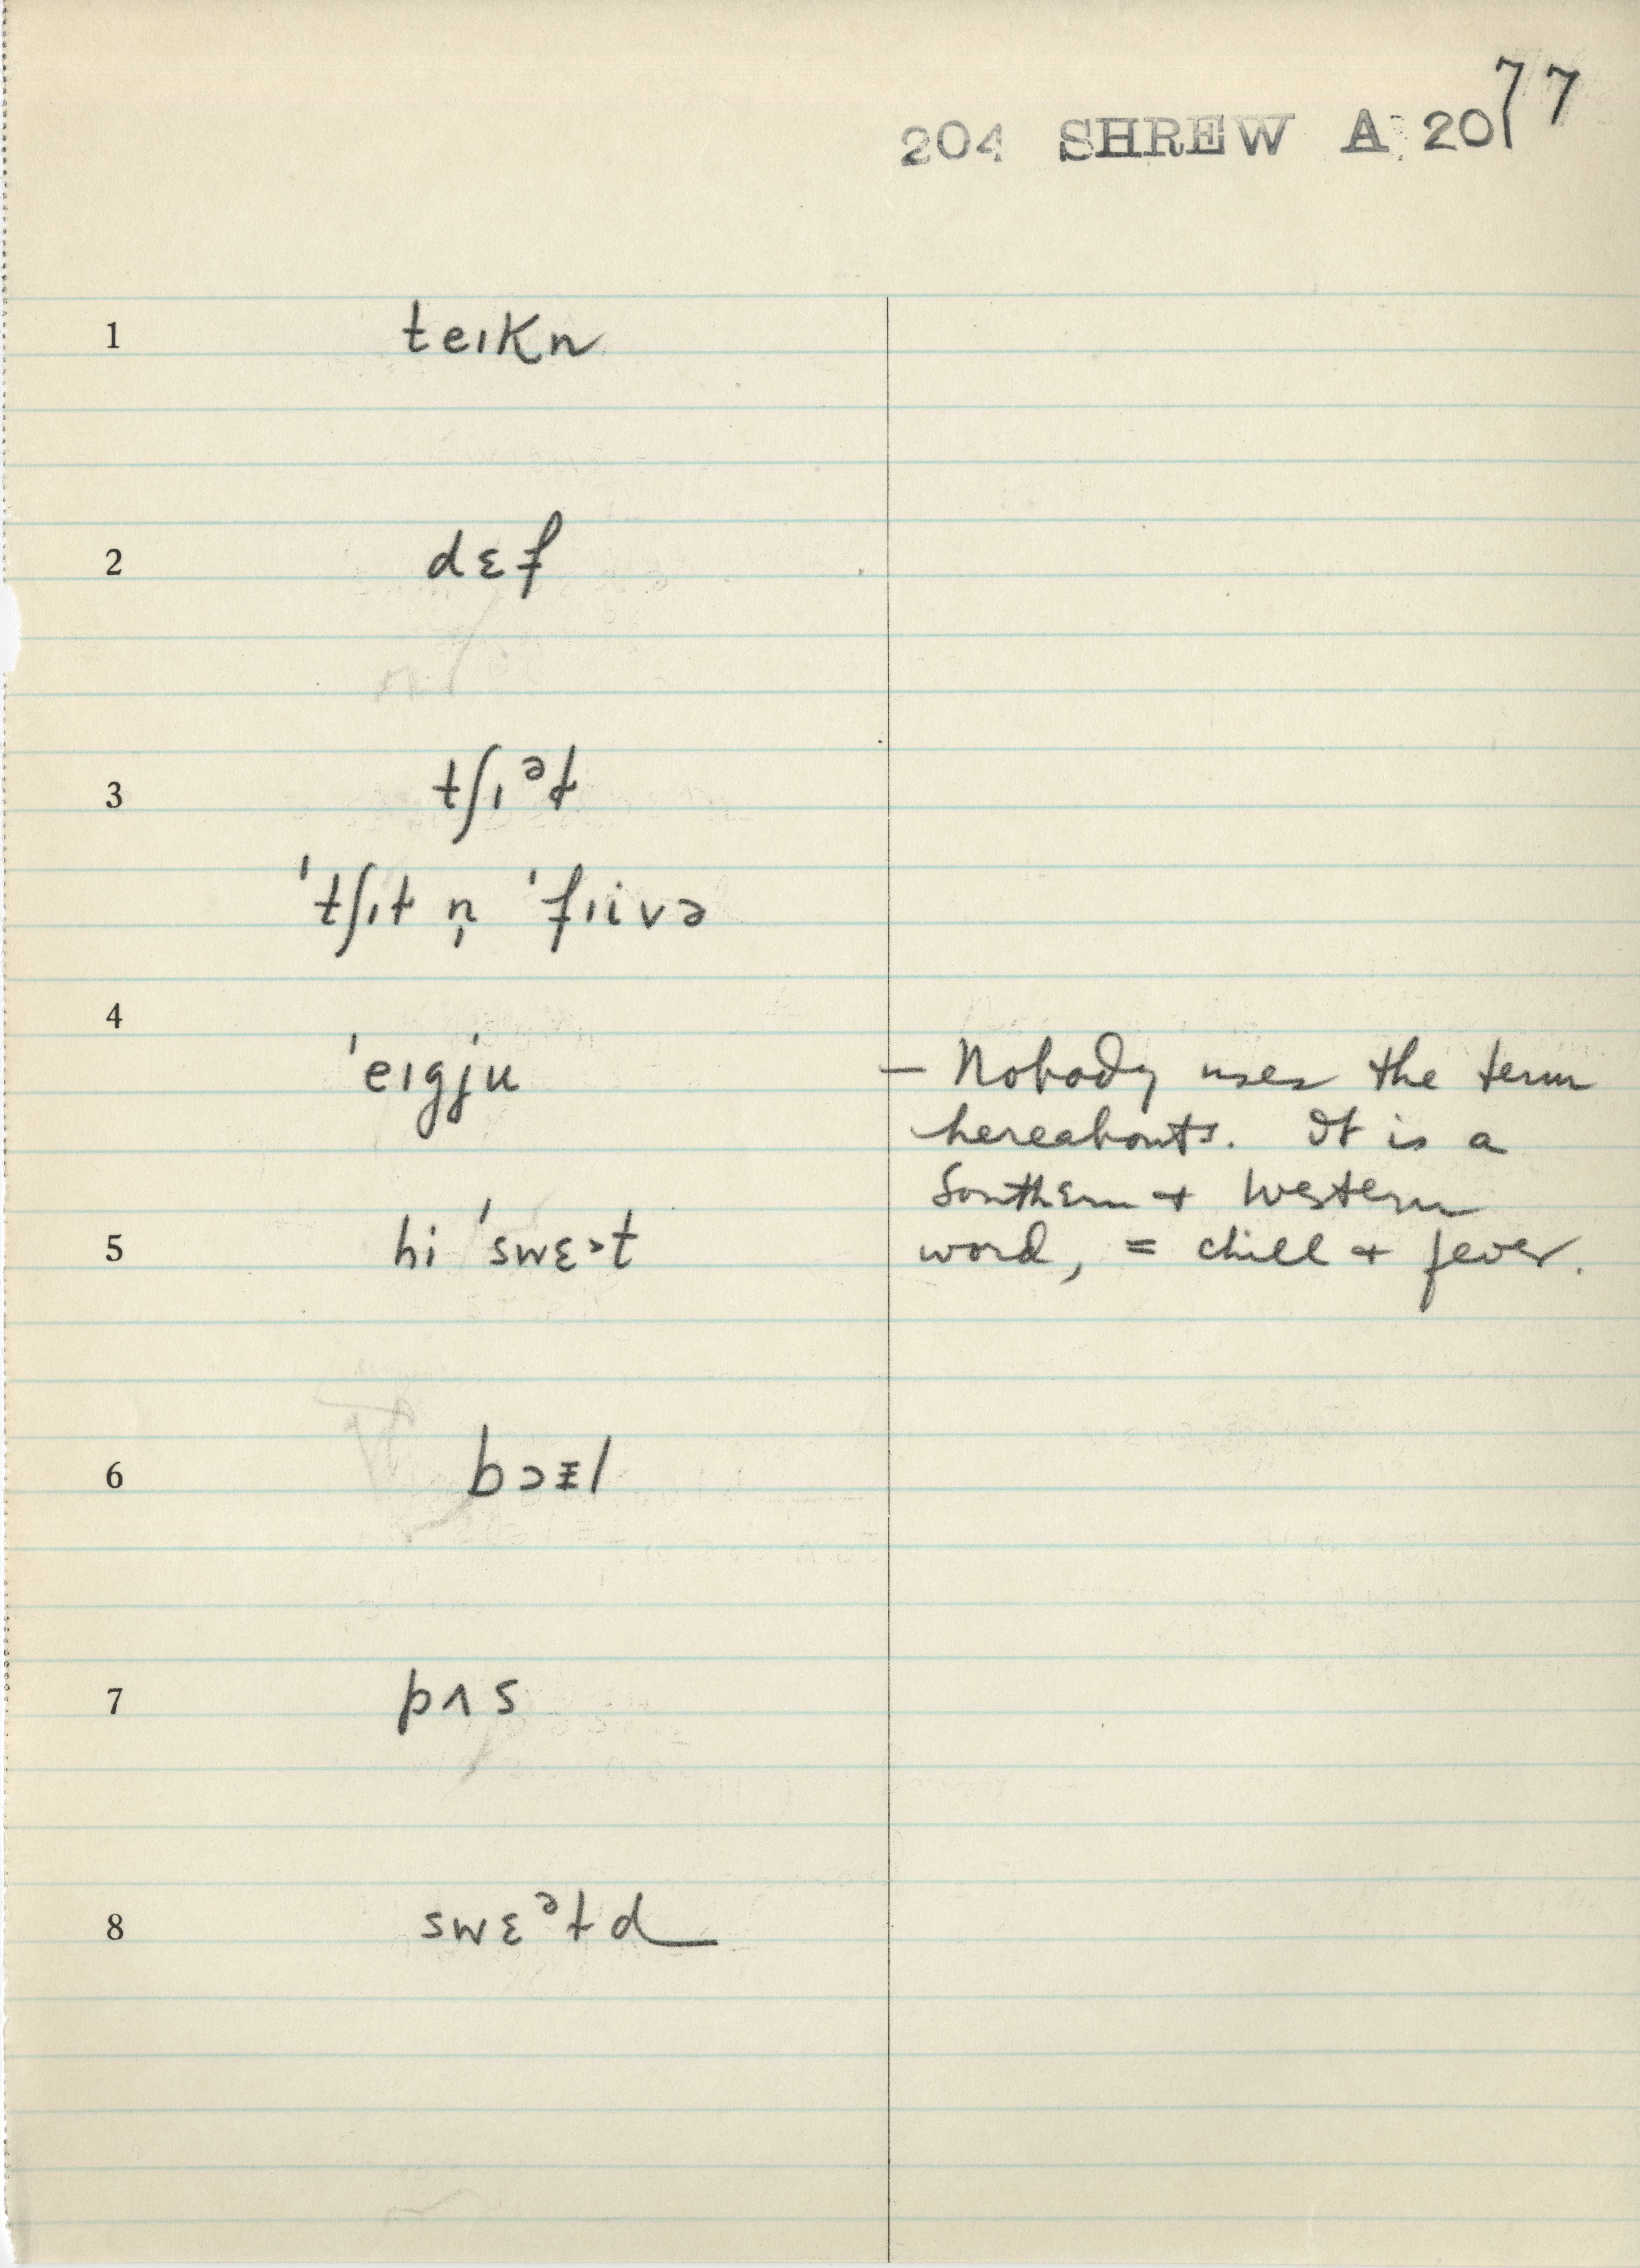 77
204 SHREW A 20
1 teɪkn
2 dɛf
3 tʃɪᵊɫ
'tʃɪɫ n̩ 'fɪivə
4
'eɪgju — Nobody uses the term
hereabouts. It is a
Southern + Western
5 hi 'swɛ˃t word, = chill + fever.
6 bɔᵻl
7 pʌs
8 swɛᵊɫd